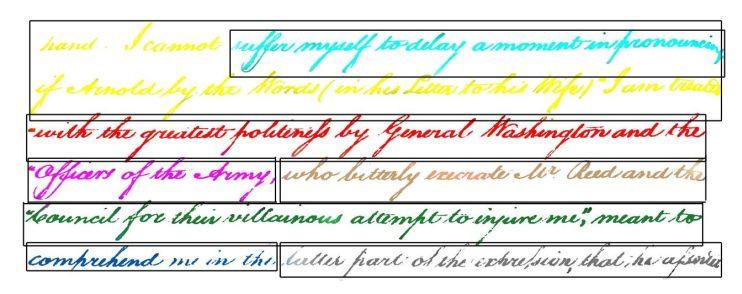 hand. I cannot suffer myself to delay a moment in pronouncing
if Arnold by the Words (in his Letter to his Wife) "I am treated
"with the greatest politeness by General Washington and the
"Officers of the Army, who bitterly execrate Mr. Reed and the
"Council for their villainous attempt to injure me", meant to
comprehend me in the latter part of the expression, that he asserted